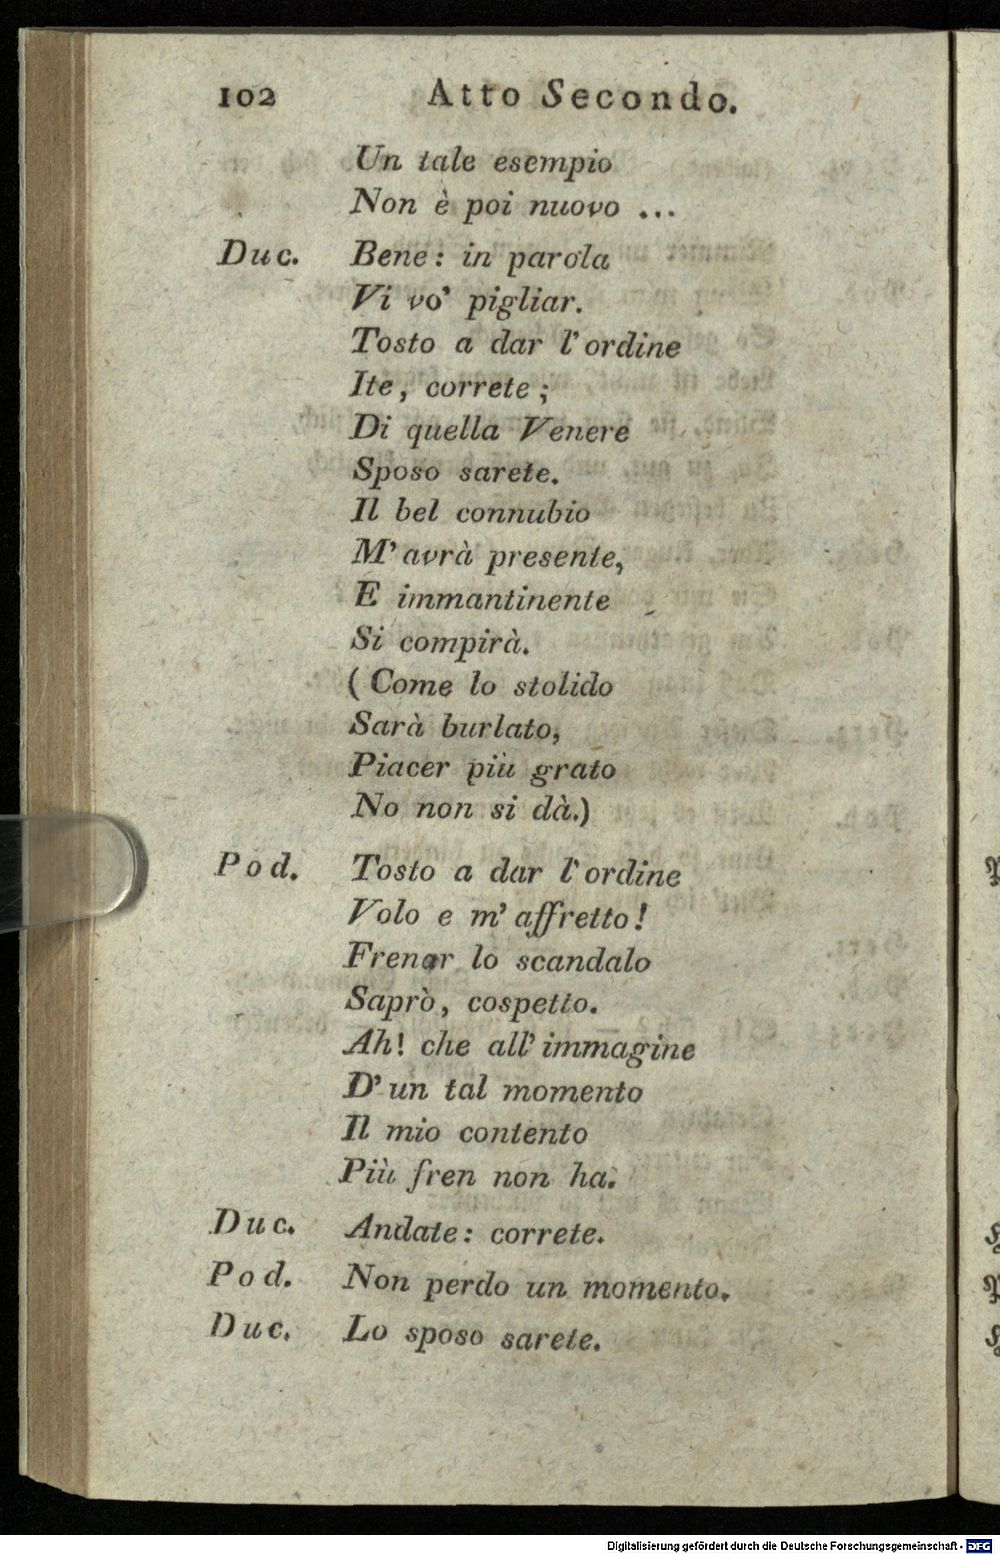 102 Atto Secondo.
Un tale esempio
Non è poi nuovo ...
Duc. Bene: in parola
Vi vo' pigliar.
Tosto a dar l'ordine
Ite, correte;
Di quella Venere
Sposo sarete.
Il bel connubio
M' avrà presente,
E immantinente
Si compirà.
(Come lo stolido
Sarà burlato,
Piacer più grato
No non si dà.)
Pod. Tosto a dar l'ordine
Volo e m' affretto!
Frenar lo scandalo
Saprò, cospetto.
Ah! che all' immagine
D' un tal momento
Il mio contento
Più fren non ha.
Duc. Andate: correte.
Pod. Non perdo un momento.
Duc. Lo sposo sarete.
Digitalisierung gefördert durch die Deutsche Forschungsgemeinschaft - DFG